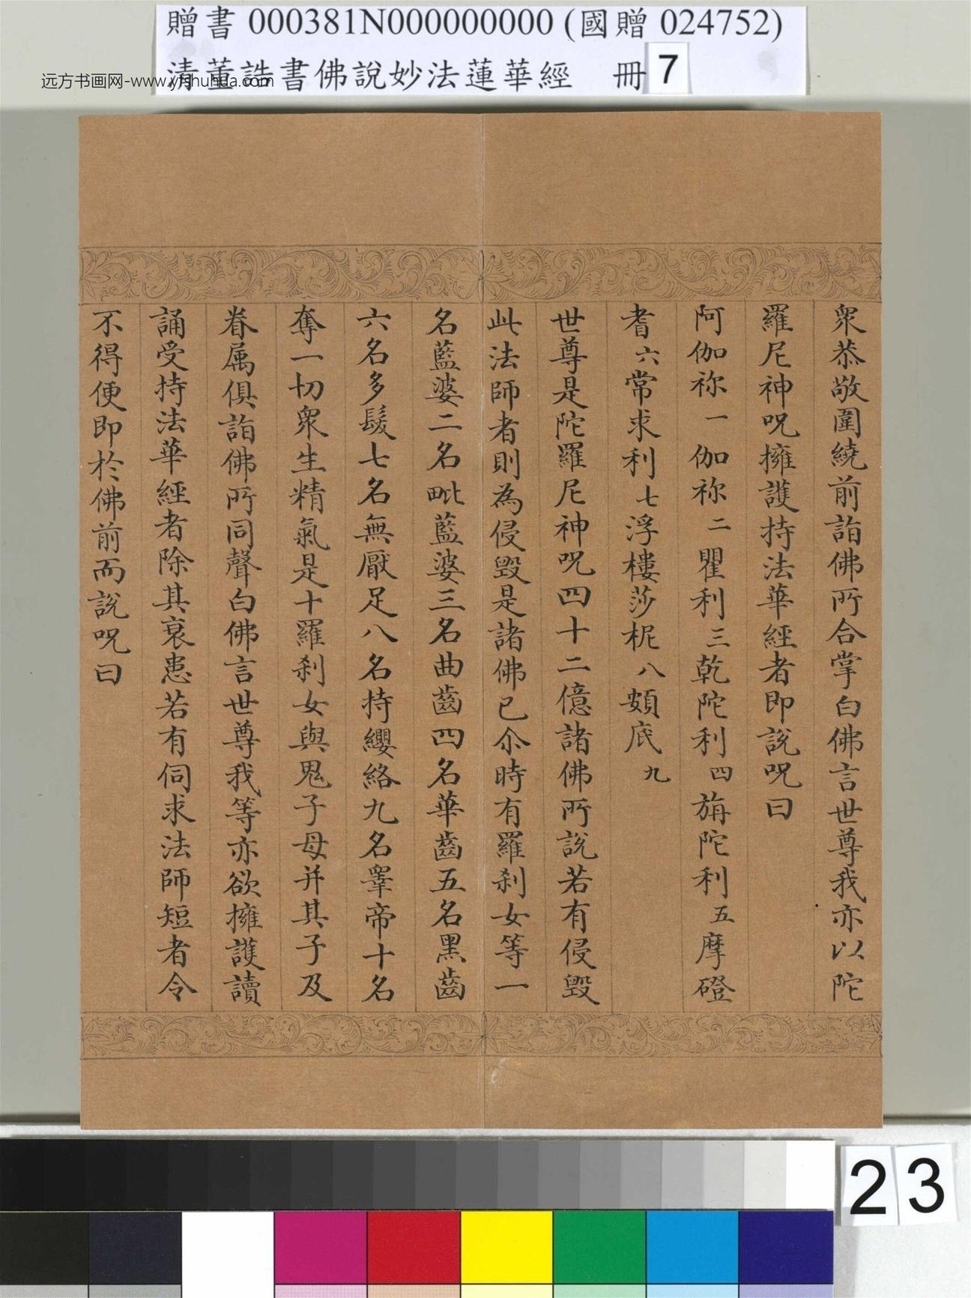 贈書 000381N000000000 (國贈 024752)
清董誥書佛說妙法蓮華經 冊 7
远方书画网-www.yfshuhua.com
眾恭敬圍繞前詣佛所合掌白佛言世尊我亦以陀
羅尼神呪擁護持法華經者即說呪曰
阿伽祢一伽祢二瞿利三乾陀利四旃陀利五摩磴
耆六常求利七浮樓莎柅八頞底九
世尊是陀羅尼神呪四十二億諸佛所說若有侵毀
此法師者則為侵毀是諸佛已尒時有羅剎女等一
名藍婆二名毗藍婆三名曲齒四名華齒五名黑齒
六名多髮七名無厭足八名持纓絡九名睪帝十名
奪一切眾生精氣是十羅剎女與鬼子母并其子及
眷属俱詣佛所同聲白佛言世尊我等亦欲擁護讀
誦受持法華經者除其衰患若有伺求法師短者令
不得便即於佛前而說呪曰
23